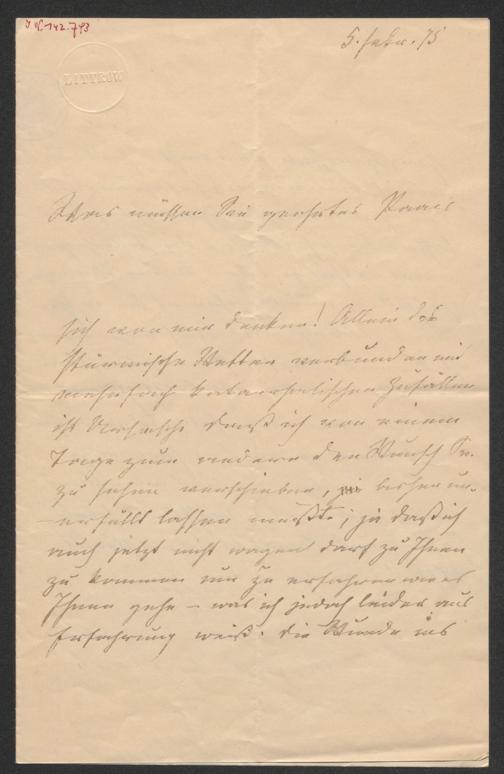 I.N. 142.793
LITTROW
5. Febr. 75
Was müssen Sie geehrtes Paar
sich von mir denken! Allein das
stürmische Wetter verbunden mit
mehrfach katarrhalischen Zufällen
ist Ursache daß ich von einem
Tage zum andern den Wunsch Sie
zu sehen verschieben, bisher un-
erfüllt lassen mußte; ja daß ich
auch jetzt nicht wagen darf zu Ihnen
zu kommen um zu erfahren wie es
Ihnen gehe – was ich jedoch leider aus
Erfahrung weiß. Die Wunde ins